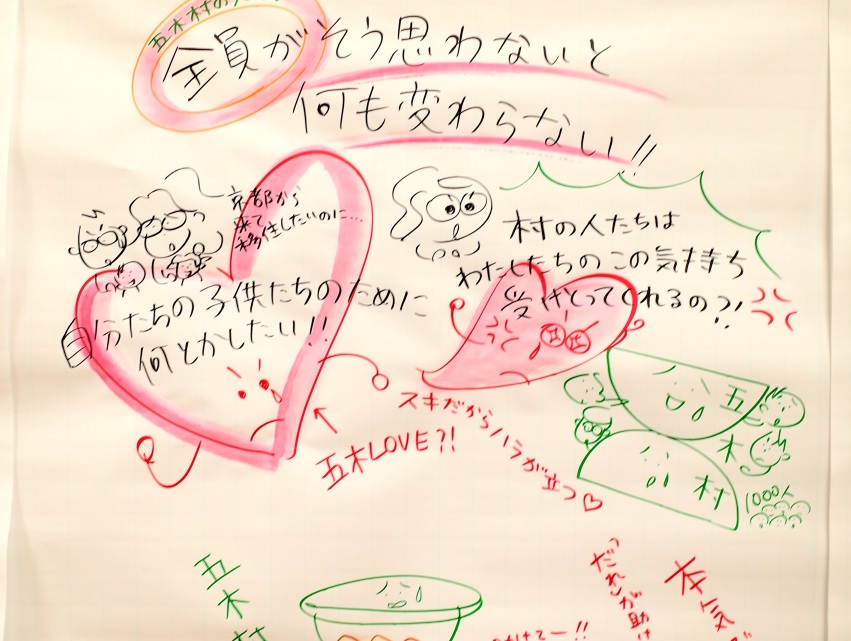 五木村の人
全員がそう思わないと
何も変わらない!!
京都から
来て
移住したいのに…
自分たちの子供たちのために
何とかしたい!!
村の人たちは
わたしたちのこの気持ち
受けとってくれるの?!
五木LOVE?!
スキだからハラが立つ♡
五
木
村
1000人
五木村
「だれ」が助け
本気